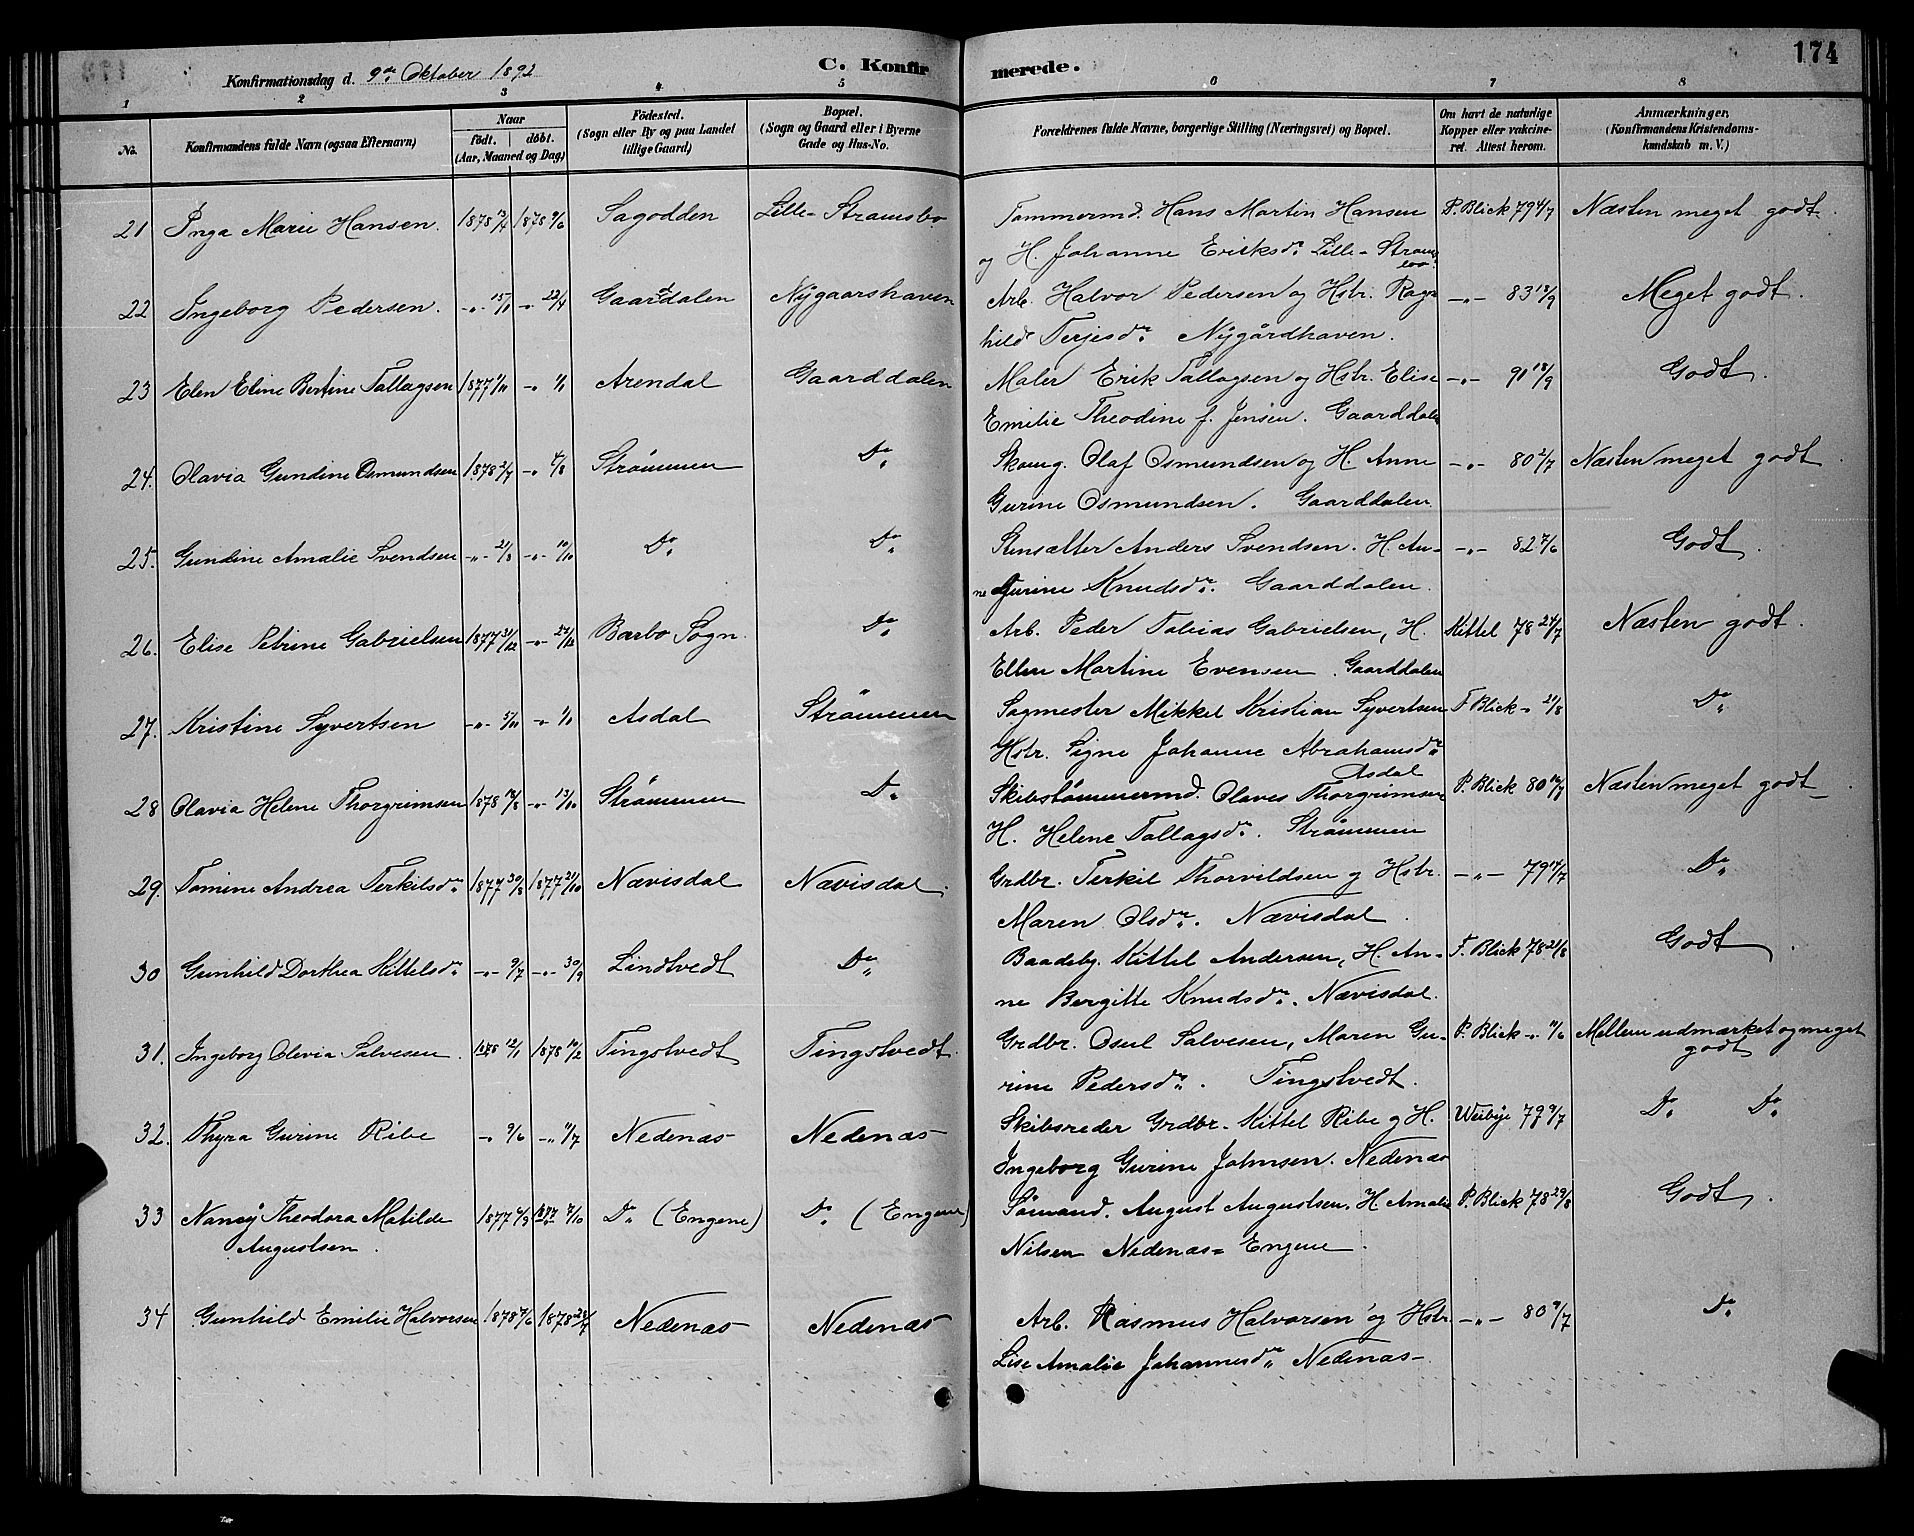 174
Konfirmationsdag d. 9de Oktober 1892
C. Konfirmerede.
1 2 3 4 5 6 7 8
No.
Konfirmandens fulde Navn (ogsaa Efternavn)
Naar
födt. döbt.
(Aar, Maaned og Dag)
Födested.
(Sogn eller By og paa Landet
tillige Gaard)
Bopæl.
(Sogn og Gaard eller i Byerne
Gade og Hus-No.
Forældrenes fulde Navne, borgerlige Stilling (Næringsvei) og Bopæl.
Om havt de naturlige
Kopper eller vakcine-
ret. Attest herom.
Anmærkninger,
(Konfirmandens Kristendoms-
kundskab m. V.)
21 Inga Marie Hansen. 1878 1878 9/6 Sagodden Lille-Strømsbo Tømmermd. Hans Martin Hansen P. Blick 79 4/7 Næsten meget godt.
og H. Johanne Eriksdr. Lille-Strøms
boe.
22 Ingeborg Pedersen. -"- 15/1 -"- 22/4 Gaarddalen Nygaarshaven Arb. Halvor Pedersen og Hstr. Ragn -"- 83 18/9 Meget godt.
hild Terjesdr. Nygårdhaven.
23 Elen Eline Bertine Tallagsen 1877 1/11 -"- 1/1 Arendal Gaarddalen Maler Erik Tallagsen og Hstr. Elise -"- 91 18/9 Godt.
Emilie Theodine f. Jensen. Gaarddalen
24. Olavia Gundine Osmundsen 1878 2/7 -"- 4/8 Strømmen Do. Skomg. Olaf Osmundsen og H. Anne -"- 80 2/7 Næsten meget godt
Gurine Osmundsen. Gaarddalen
25. Gundine Amalie Svendsen -"- 21/8 -"- 10/10 Do. Do. Stensætter Anders Svendsen. H. An- -"- 82 7/6 Godt.
ne Gurine Knudsdr. Gaarddalen.
26. Elise Petrine Gabrielsen 1877 31/12 -"- Barbo Sogn. Do. Arb. Peder Tobias Gabrielsen, H. Kittel 78 24/7 Næsten godt.
Ellen Martine Evensen. Gaarddalen
27. Kristine Syvertsen -"- 5/11 -"- 1/1 Asdal Strømmen Sagmester Mikkel Kristian Syvertsen F. Blick -"- 21/8 Do.
Hstr. Signe Johanne Abrahamsdr.
Asdal
28 Olavia Helene Thorgrimsen 1878 18/8 -"- 13/10 Strømmen Do. Skibstømmermd. Olaves Thorgrimsen P. Blick 80 Næsten meget godt
H. Helene Tallagsdr. Strømmen
29. Tomine Andrea Terkilsdr. 1877 30/8 1877 21/10 Nævisdal Nævisdal. Grdbr. Terkil Thorvildsen og Hstr. -"- 79 17/7 Do.
Maren Olsdr. Nævisdal.
30 Gunhild Dorthea Kittelsdr. -"- 9/7 -"- 30/9 Lindtvedt Do. Baadsbg. Kittel Andersen, H. An- F. Blick 78 21/8 Godt.
ne Bergitte Knudsdr. Nævisdal.
31. Ingeborg Olevia Salvesen. 1878 12/1 1878 10/2 Tingstvedt Tingstvedt. Grdbr. Osul Salvesen, Maren Gu- P. Blick -"- 11/6 Mellem udmærket og meget
godt
rine Pedersdr. Tingstvedt.
32. Thyra Gurine Ribe -"- 9/6 -"- 11/7 Nedenæs Nedenæs Skibsreder Grdbr. Kittel Ribe og H. Weibye 79 9/7 Do. Do.
Ingeborg Gurine Johnsen. Nedenæs
33 Nancÿ Theodora Matilde 1877 4/9 1877 7/10 Do. (Engene) Do. (Engene) Sømand. August Augustsen. H. Amalie P. Blick 78 29/8 Godt.
Augustsen.
Nilsen Nedenæs-Engene.
34 Gunhild Emilie Halvorsen 1878 7/6 1878 28/7 Nedenæs Nedenæs Arb. Rasmus Halvorsen og Hstr. -"- 80 9/7 Do.
Lise Amalie Johannesdr. Nedenæs.